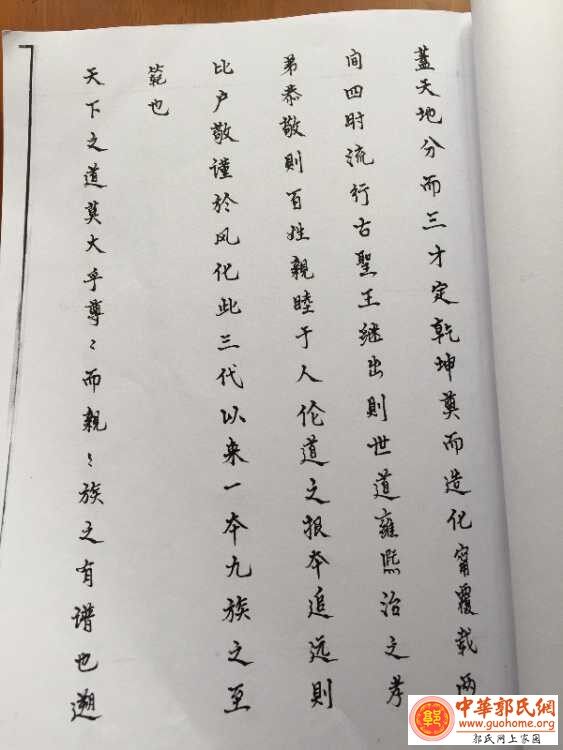 蓋天地分而三才定乾坤奠而造化甯覆载两
间四时流行古聖王继出則世道雍熙治之孝
弟恭敬則百姓親睦于人伦道之根本追远則
比户敬謹於风化此三代以来一本九族之至
範也
天下之道莫大乎尊〻而親〻族之有谱也遡
中華郭氏網
www.guohome.org
郭氏网上家园